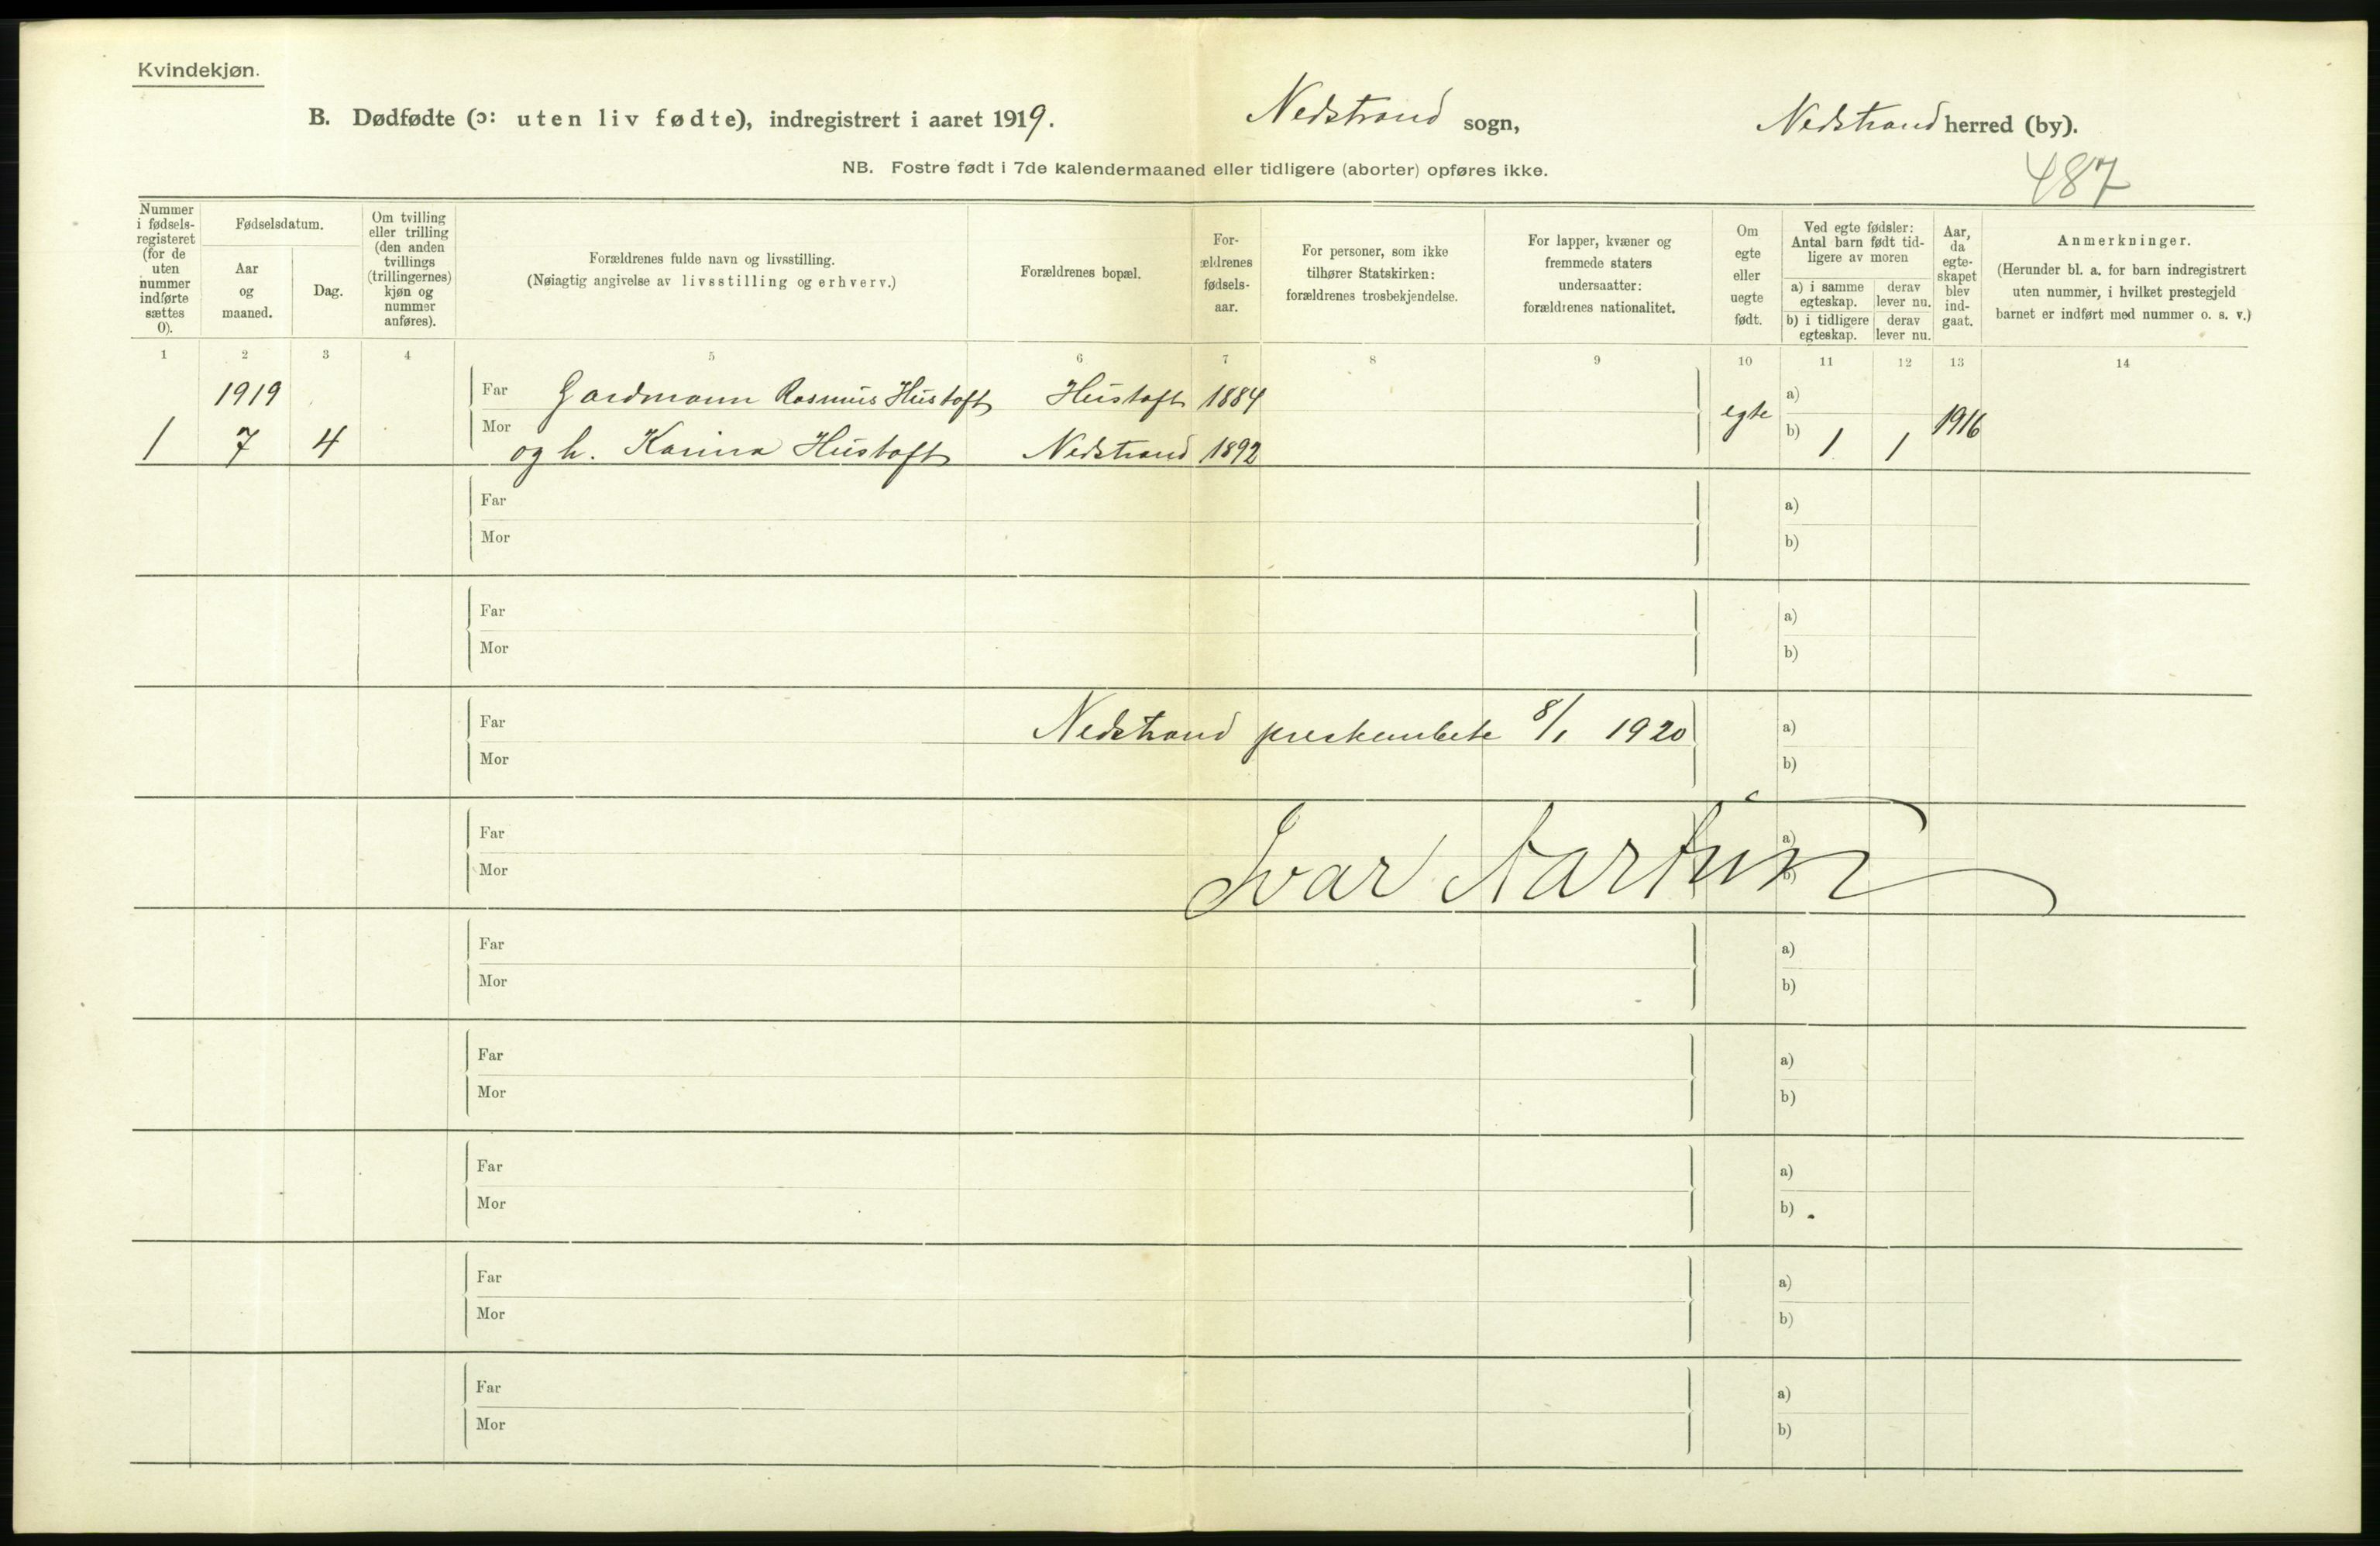 Kvindekjøn.
B. Dødfødte (ɔ: uten liv fødte), indregistrert i aaret 1919. Nedstrand sogn, Nedstrand herred (by).
NB. Fostre født i 7de kalendermaaned eller tidligere (aborter) opføres ikke.
487
Nummer i fødsels-registeret (for de uten nummer indførte sættes 0).
Fødselsdatum.
Aar og maaned.
Dag.
Om tvilling eller trilling (den anden tvillings (trillingernes) kjøn og nummer anføres).
Forældrenes fulde navn og livsstilling.
(Nøiagtig angivelse av livsstilling og erhverv.)
Forældrenes bopæl.
For-ældrenes fødsels-aar.
For personer, som ikke tilhører Statskirken: forældrenes trosbekjendelse.
For lapper, kvæner og fremmede staters undersaatter: forældrenes nationalitet.
Om egte eller uegte født.
Ved egte fødsler: Antal barn født tid-ligere av moren
a) i samme egteskap.
derav lever nu.
b) i tidligere egteskap.
derav lever nu.
Aar, da egte-skapet blev ind-gaat.
Anmerkninger.
(Herunder bl. a. for barn indregistrert uten nummer, i hvilket prestegjeld barnet er indført med nummer o. s. v.)
1 2 3 4 5 6 7 8 9 10 11 12 13 14
1919 Far Gardmann Rasmus Hustoft Hustoft 1884 egte a) 1916
1 7 4 Mor og h. Karina Hustoft Nedstrand 1892 b) 1 1
Far a)
Mor b)
Far a)
Mor b)
Far Nedstrand prestembete 8/1 1920 a)
Mor b)
Far a)
Mor Ivar Aartun b)
Far a)
Mor b)
Far a)
Mor b)
Far a)
Mor b)
Far a)
Mor b)
Far a)
Mor b)